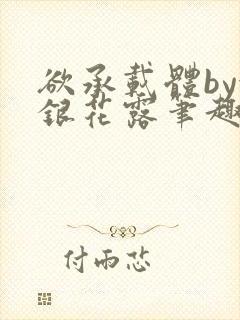 欲承載體by
銀花露筆趣
付雨芯